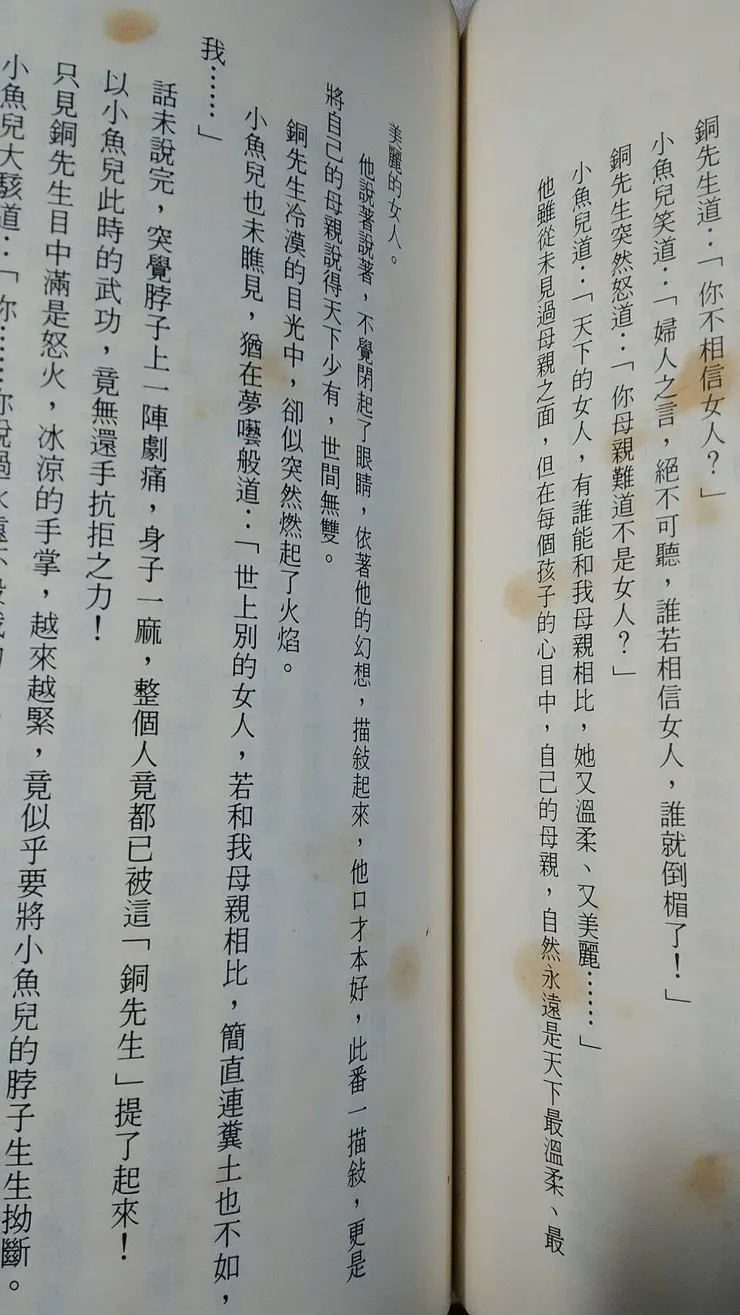 銅先生道：「你不相信女人？」
小魚兒笑道：「婦人之言，絕不可聽，誰若相信女人，誰就倒楣了！」
銅先生突然怒道：「你母親難道不是女人？」
小魚兒道：「天下的女人，有誰能和我母親相比，她又溫柔、又美麗……」
他雖從未見過母親之面，但在每個孩子的心目中，自己的母親，自然永遠是天下最溫柔、最
美麗的女人。
他說著說著，不覺閉起了眼睛，依著他的幻想，描敍起來，他口才本好，此番一描敍，更是
將自己的母親說得天下少有，世間無雙。
銅先生冷漠的目光中，卻似突然燃起了火焰。
小魚兒也未瞧見，猶在夢囈般道：「世上別的女人，若和我母親相比，簡直連糞土也不如，
我……」
話未說完，突覺脖子上一陣劇痛，身子一麻，整個人竟都已被這「銅先生」提了起來！
以小魚兒此時的武功，竟無還手抗拒之力！
只見銅先生目中滿是怒火，冰涼的手掌，越來越緊，竟似乎要將小魚兒的脖子生生拗斷。
小魚兒大駭道：「你……你說過永遠不